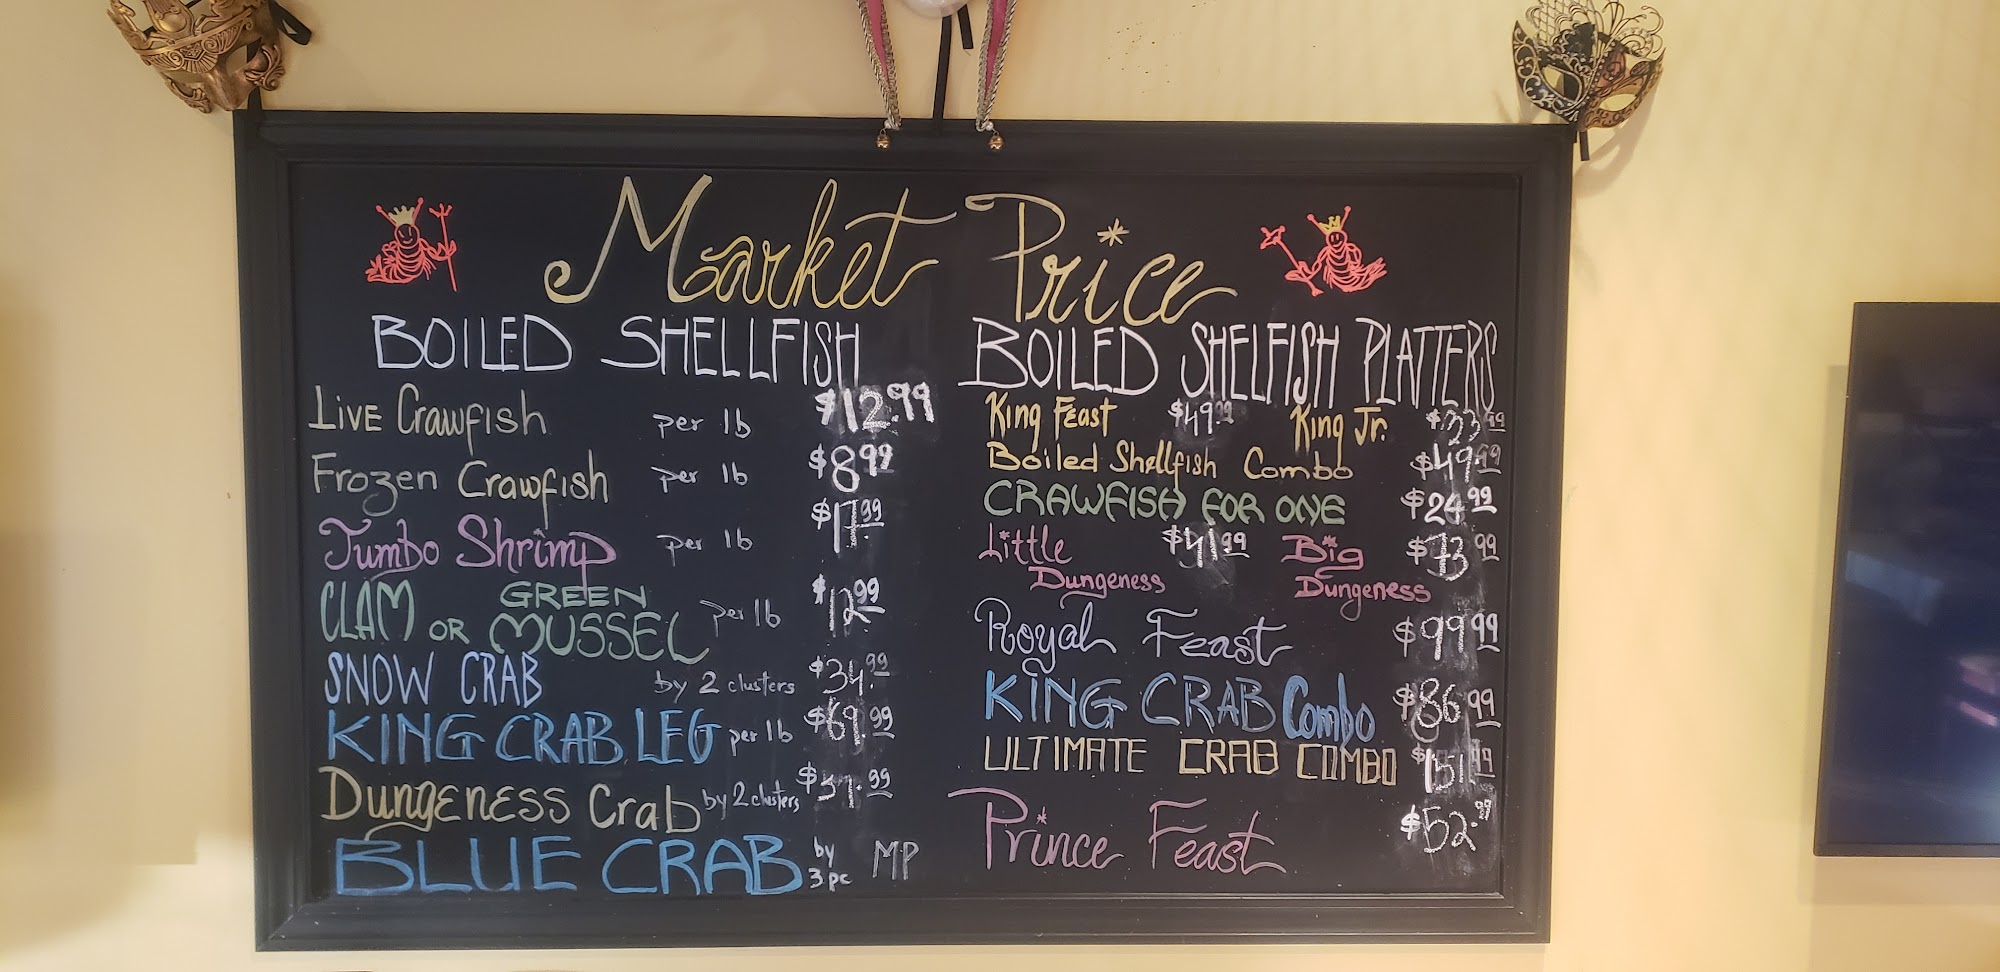 Market Price
BOILED SHELLFISH
LIVE Crawfish per lb $12.99
Frozen Crawfish per lb $8.99
Jumbo Shrimp per lb $17.99
CLAM OR GREEN MUSSEL per lb $12.99
SNOW CRAB by 2 clusters $34.99
KING CRAB LEG per lb $69.99
DUNGENESS Crab by 2 clusters
BLUE CRAB by 3pc MP
BOILED SHELFISH PLATTERS
King Feast $49.99 King Jr. $33.99
Boiled Shellfish Combo $49.99
CRAWFISH FOR ONE $24.99
Little Dungeness Big Dungeness
Royal Feast $99.99
KING CRAB Combo $86.99
ULTIMATE CRAB COMBO $151.99
Prince Feast $52.99